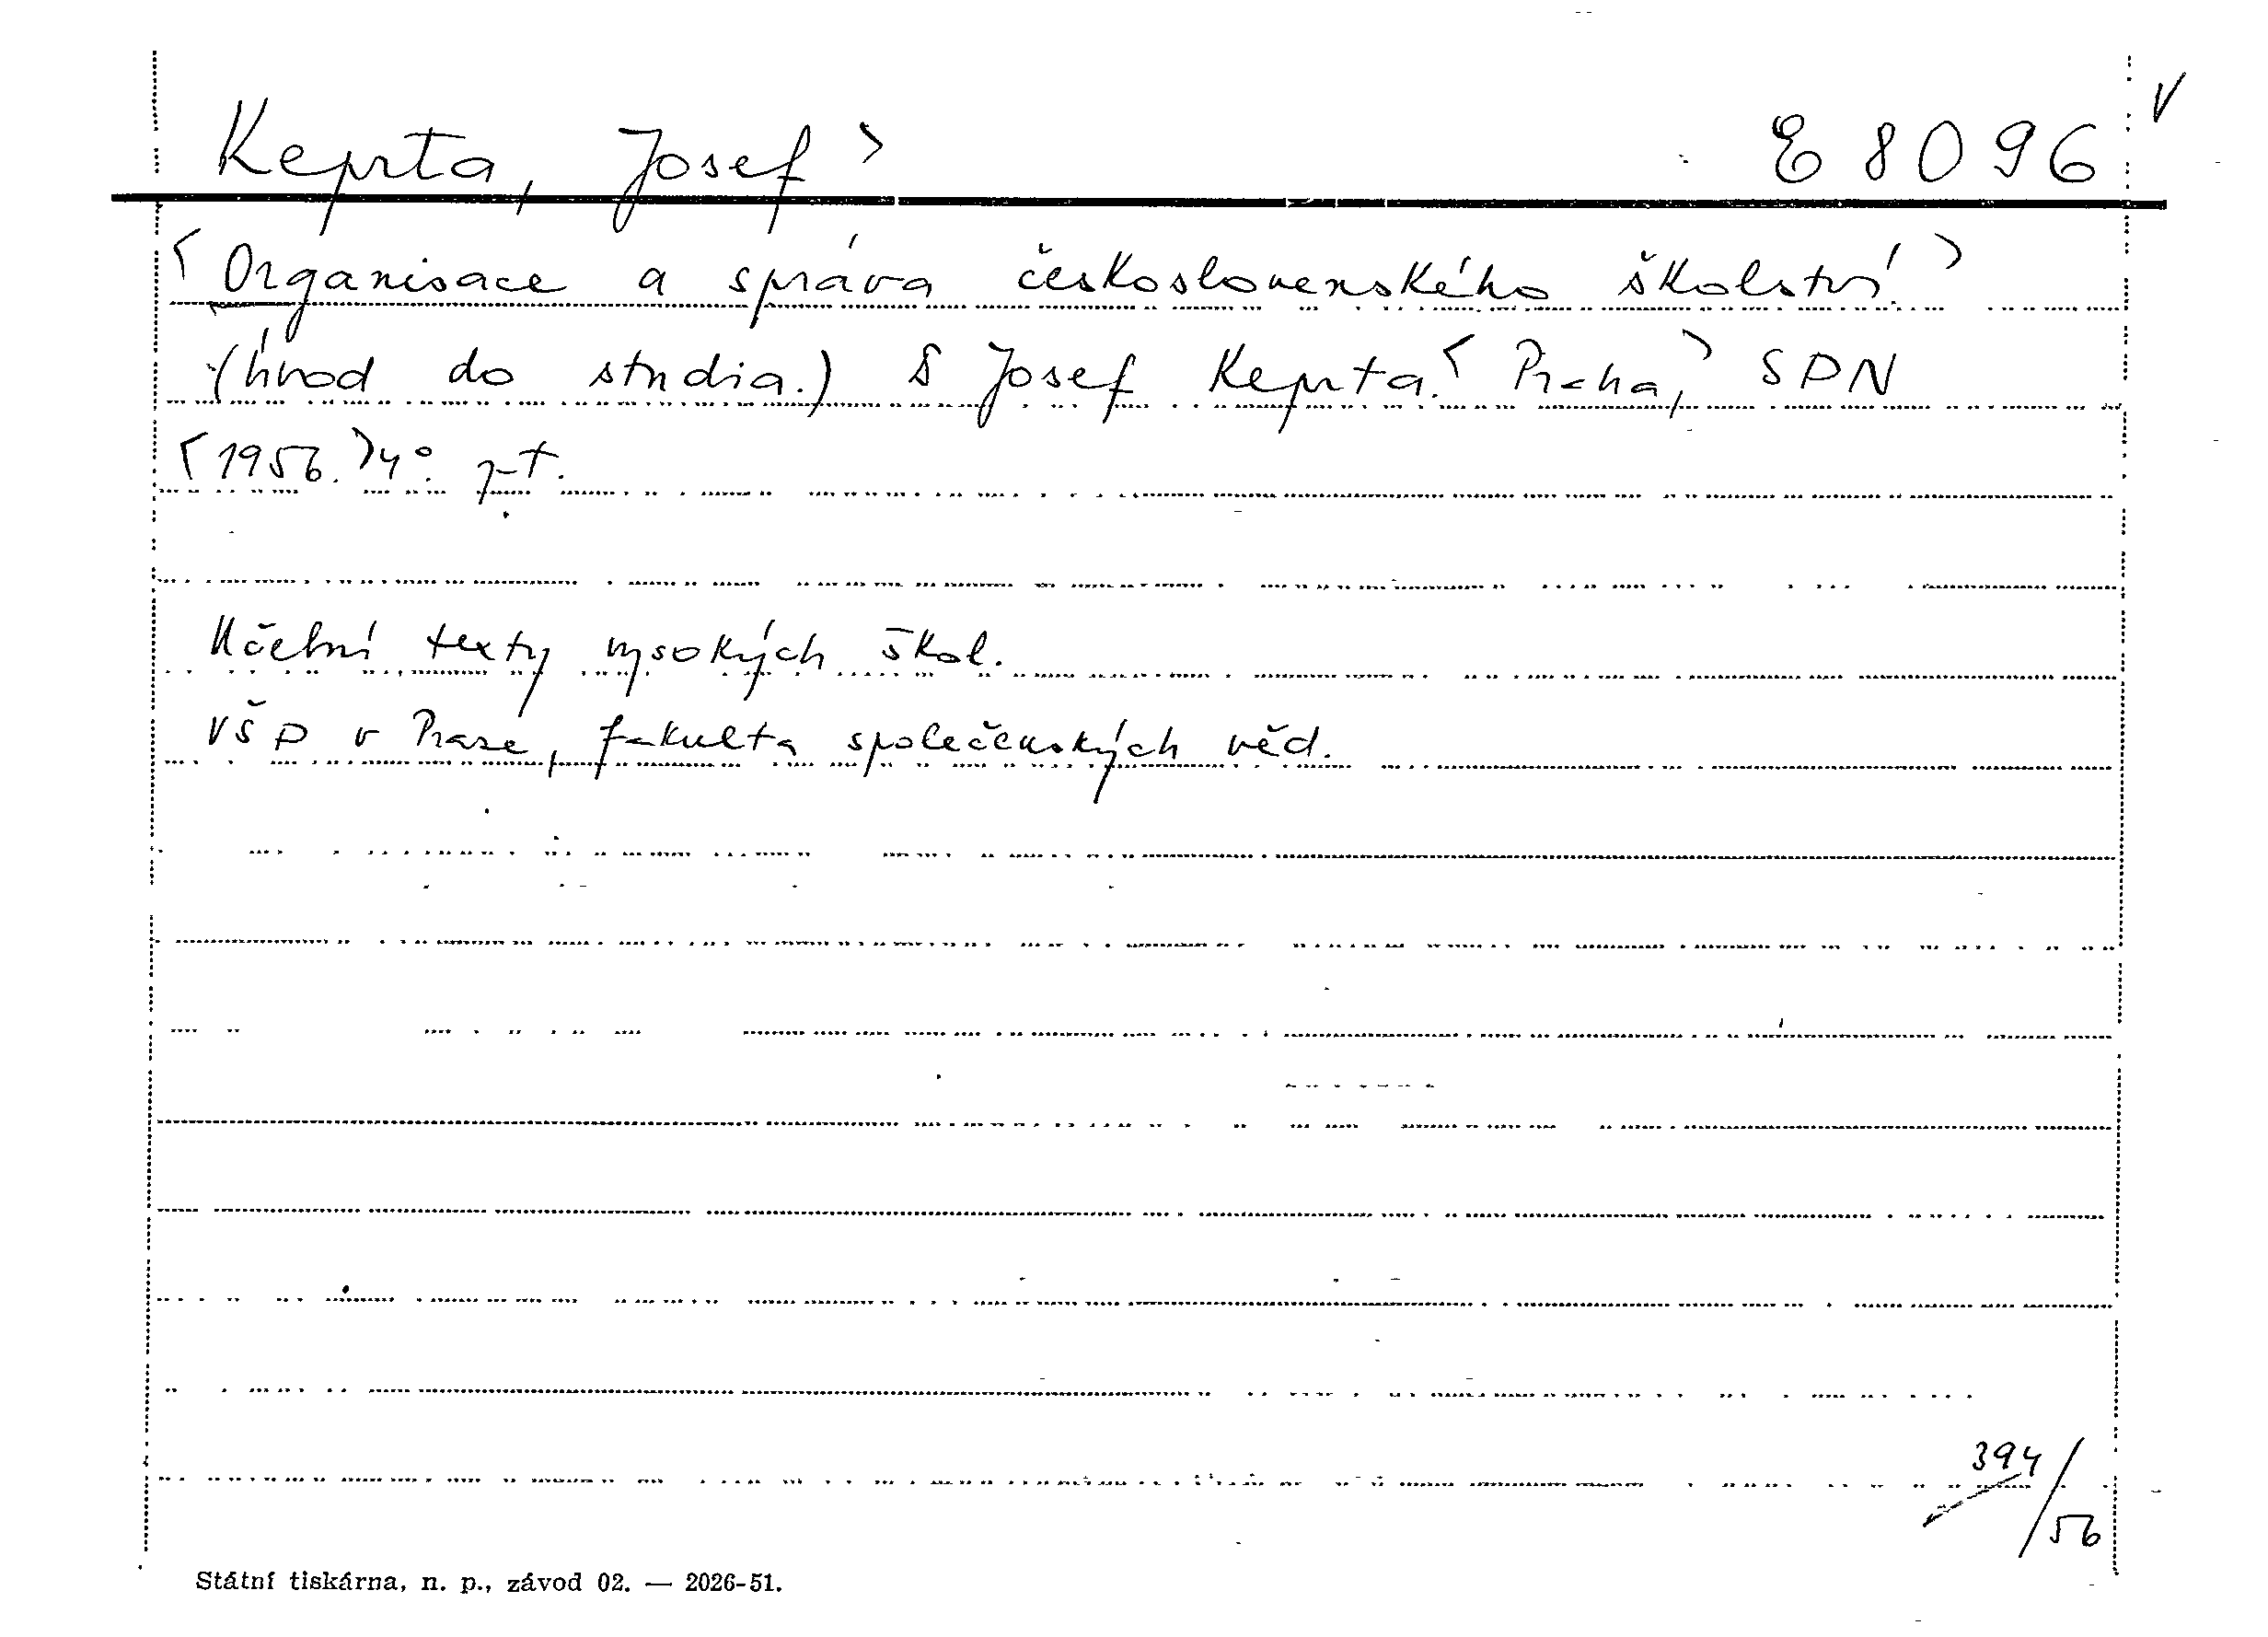 Keprta, Josef > E 8096 V
<Organisace a správa československého školství.>
(Úvod do studia.) § Josef Keprta. <Praha,> SPN
<1956.> 4°.
Učební texty vysokých škol.
VŠP v Praze, fakulta společenských věd.
394/56
Státní tiskárna, n. p., závod 02. — 2026-51.